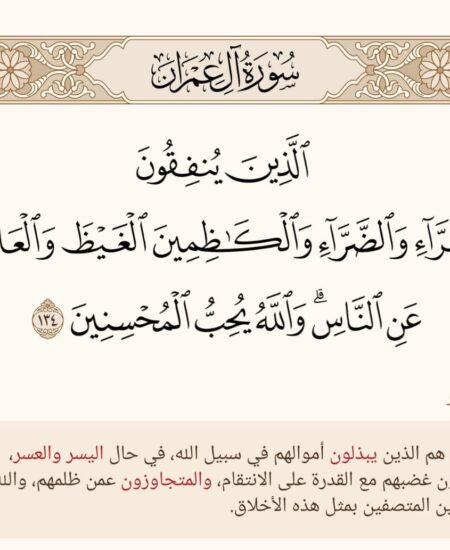 سُورَةُ آلِ عِمْرَان
ٱلَّذِينَ يُنفِقُونَ
وَٱلضَّرَّآءِ وَٱلْكَـٰظِمِينَ ٱلْغَيْظَ
عَنِ ٱلنَّاسِ ۗ وَٱللَّهُ يُحِبُّ ٱلْمُحْسِنِينَ ١٣٤
هم الذين يبذلون أموالهم في سبيل الله، في حال اليسر والعسر،
غضبهم مع القدرة على الانتقام، والمتجاوزون عمن ظلمهم،
المتصفين بمثل هذه الأخلاق.